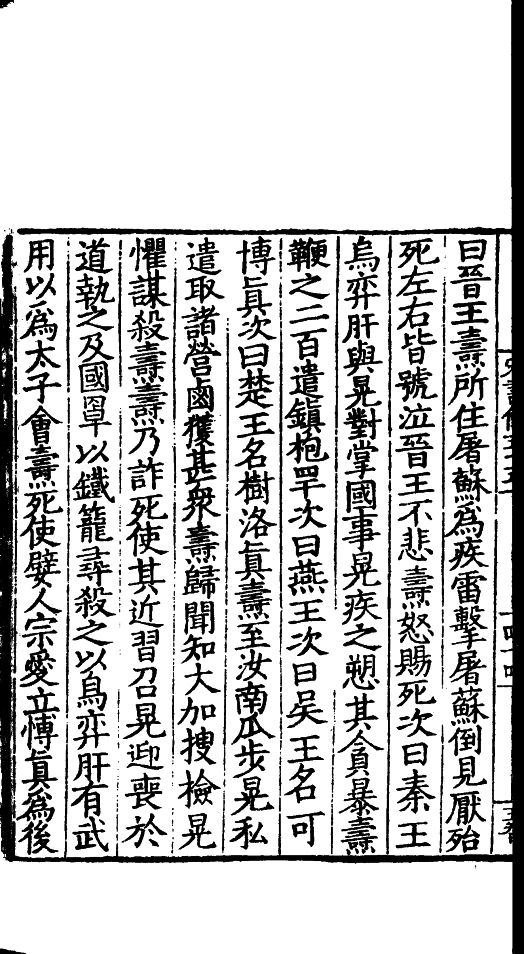 曰晉王燾所住屠蘇爲疾雷擊屠蘇倒見厭殆
死左右皆號泣晉王不悲燾怒賜死次曰秦王
烏弈肝與晃對掌國事晃疾之愬其貪暴燾
鞭之二百遣鎮枹罕次曰燕王次曰吳王名可
博真次曰楚王名樹洛真燾至汝南瓜步晃私
遣取諸營鹵獲甚衆燾歸聞知大加搜檢晃
懼謀殺燾燾乃詐死使其近習召晃迎喪於
道執之及國罩以鐵籠尋殺之以烏弈肝有武
用以爲太子會燾死使嬖人宗愛立博真爲後